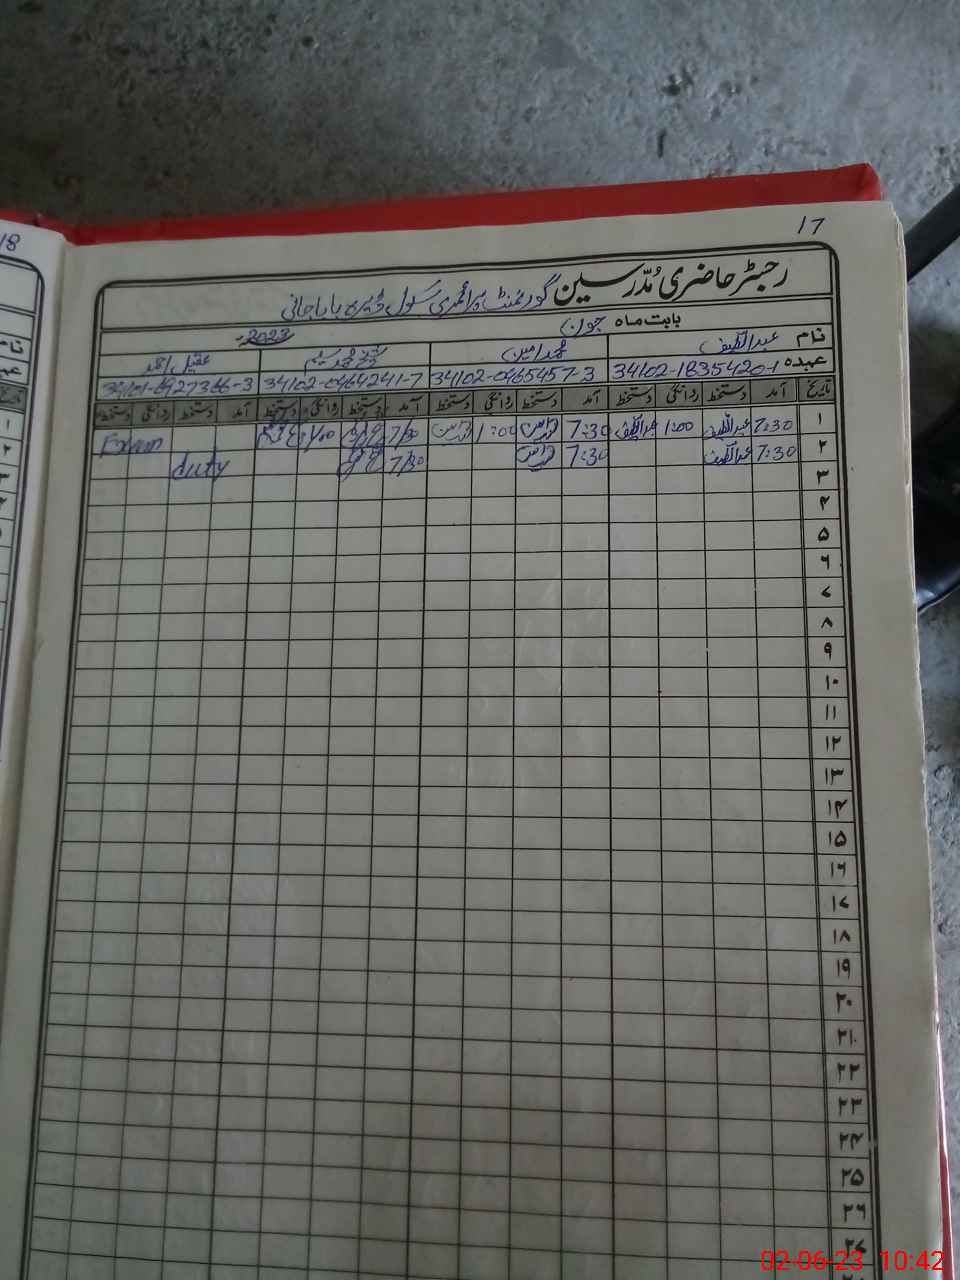 17
18
رجسٹر حاضری مدرسین گورنمنٹ پرائمری سکول ڈیرہ باباجانی
بابت ماہ جون 2023ء
نام عبداللطیف محمد امین محمد عقیل احمد
عہدہ 34102-1835420-1 34102-0465457-3 34102-0464241-7
تاریخ آمد دستخط روانگی دستخط آمد دستخط روانگی دستخط آمد دستخط روانگی دستخط آمد دستخط روانگی دستخط
۱ 7:30 عبداللطیف 1:00 عبداللطیف 7:30 1:00 7/30 1/00 Exam
۲ 7:30 عبداللطیف 7:30 7/30 Duty
۳
۴
۵
۶
۷
۸
۹
۱۰
۱۱
۱۲
۱۳
۱۴
۱۵
۱۶
۱۷
۱۸
۱۹
۲۰
۲۱
۲۲
۲۳
۲۴
۲۵
۲۶
۲۷
نام
تاریخ
02-06-23 10:42